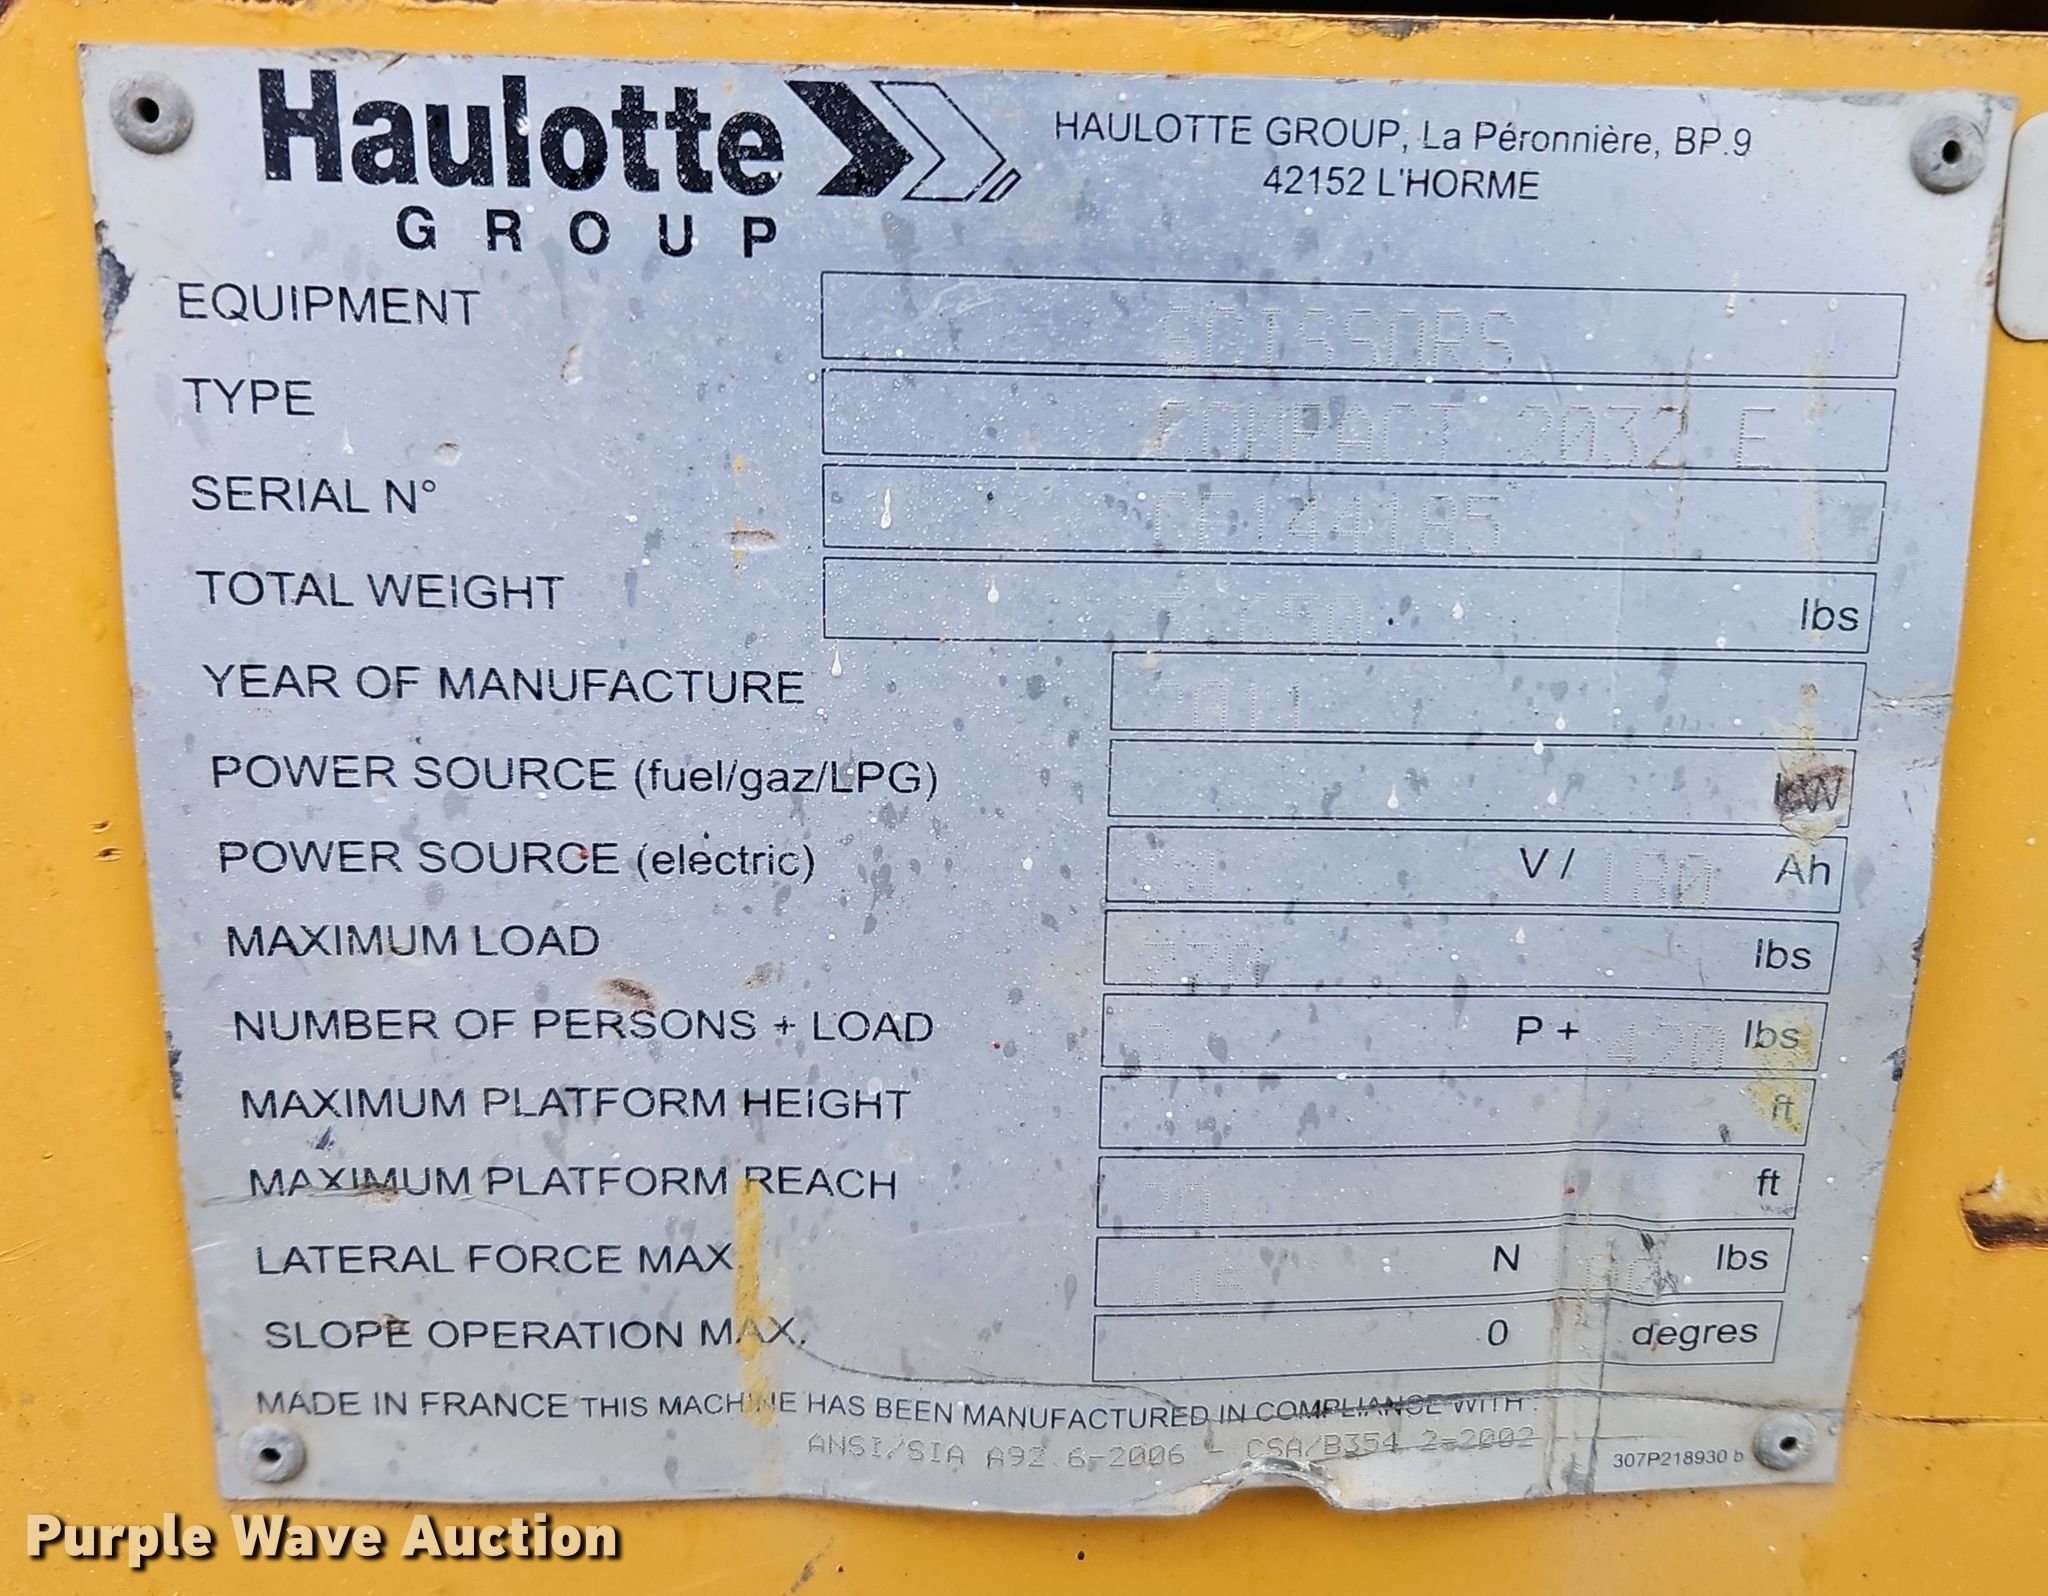 Haulotte
GROUP
HAULOTTE GROUP, La Péronnière, BP.9
42152 L'HORME
EQUIPMENT SCISSORS
TYPE COMPACT 2032 E
SERIAL N° CE144185
TOTAL WEIGHT lbs
YEAR OF MANUFACTURE 2011
POWER SOURCE (fuel/gaz/LPG) kW
POWER SOURCE (electric) 24 V / 180 Ah
MAXIMUM LOAD 770 lbs
NUMBER OF PERSONS + LOAD 2 P + 420 lbs
MAXIMUM PLATFORM HEIGHT ft
MAXIMUM PLATFORM REACH 20 ft
LATERAL FORCE MAX. N lbs
SLOPE OPERATION MAX. 0 degres
MADE IN FRANCE THIS MACHINE HAS BEEN MANUFACTURED IN COMPLIANCE WITH :
ANSI/SIA A92.6-2006 - CSA/B354.2-2002
307P218930 b
Purple Wave Auction